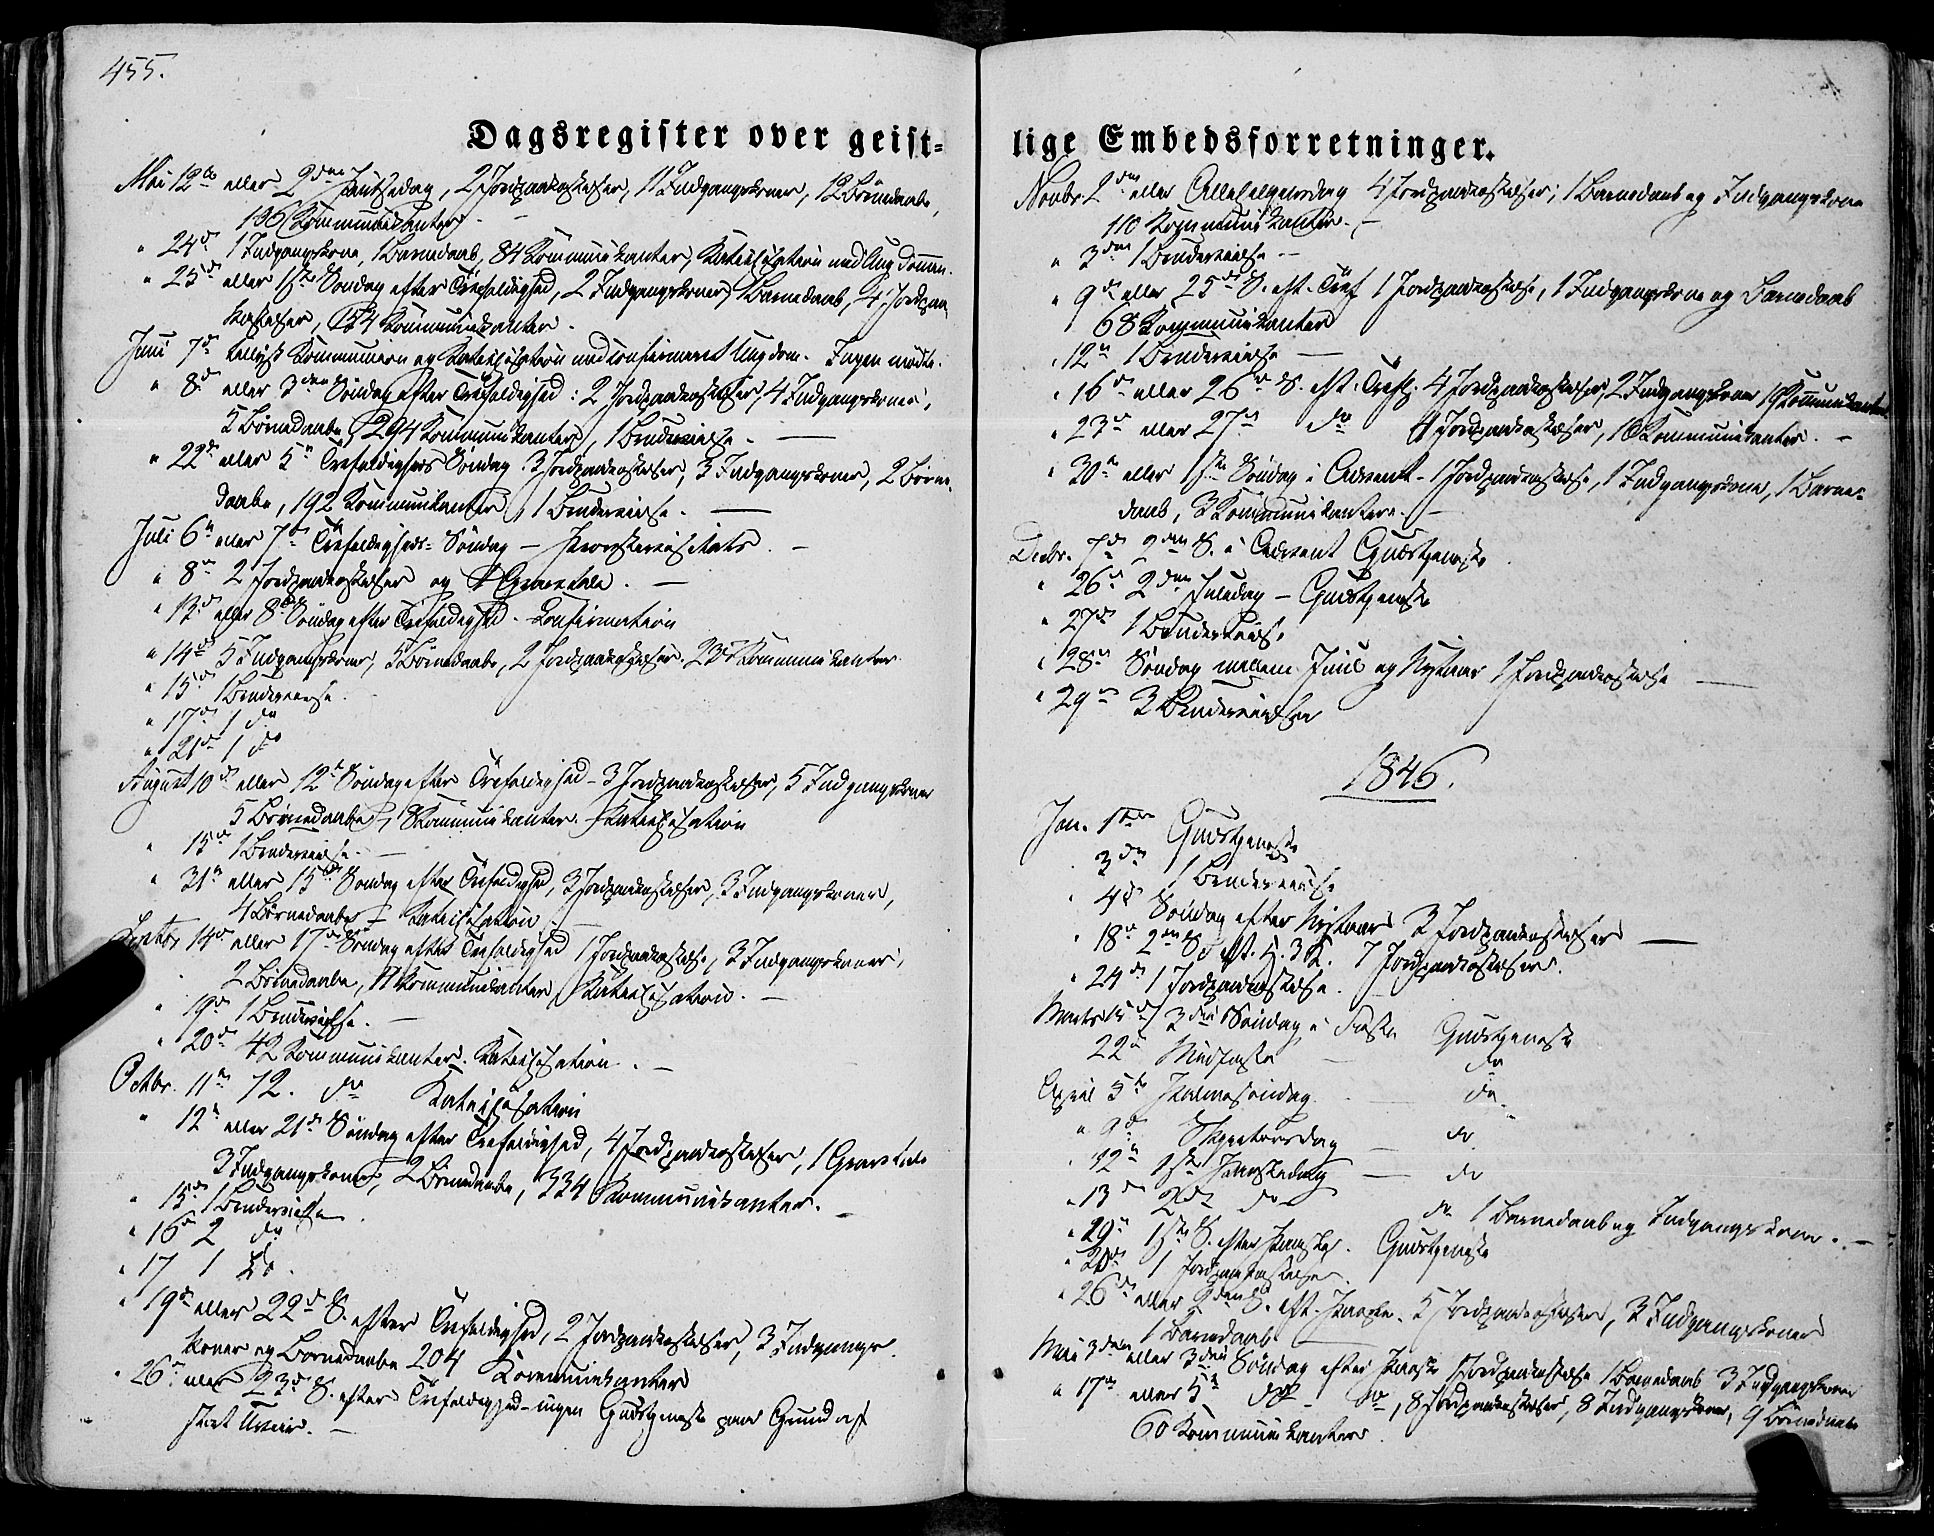 455.
Dagsregister over geist-
Mai 12te eller 2den Pintsedag, 2 Jordpaakastelser, 11 Indgangskoner, 12 Børnedaabe,
Kommunikanter
" 24de 1 Indgangskone, 1 Barnedaab, 84 Kommunikanter, Katechisation med Ungdommen.
" 25de eller 1ste Søndag efter Trefoldighed, 2 Indgangskoner, 1 Barnedaab, 4 Jordpaa-
kastelser, 154 Kommunikanter.
Juni 7de Kommunion og Katechisation med confirmeret Ungdom. Ingen mødte.
" 8de eller 3den Søndag efter Trefoldighed: 2 Jordpaakastelser, 4 Indgangskoner,
5 Børnedaabe, 294 Kommunikanter, 1 Brudevielse. —
" 22de eller 5te Trefoldigheds Søndag. 3 Jordpaakastelser, 3 Indgangskoner, 2 Børne-
daabe, 192 Kommunikanter, 1 Brudevielse. —
Juli 6te eller 7de Trefoldigheds-Søndag — Provstevisitats. —
" 8de 2 Jordpaakastelser og 1 Gravtale. —
" 13de eller 8de Søndag efter Trefoldighed. Confirmation
" 14de 5 Indgangskoner, 5 Børnedaabe, 2 Jordpaakastelser. Kommunikanter
" 15de 1 Brudevielse.
" 17de 1 do
" 21de 1 do
August 10de eller 12te Søndag efter Trefoldighed - 3 Jordpaakastelser, 5 Indgangskoner
5 Børnedaabe, Kommunikanter. Katechisation
" 15de 1 Brudevielse. —
" 31te eller 15de Søndag efter Trefoldighed, 3 Jordpaakastelser, 3 Indgangskoner,
4 Børnedaabe - Katechisation —
Septbr. 14de eller 17de Søndag efter Trefoldighed 1 Jordpaakastelse, 3 Indgangskoner,
2 Børnedaabe, Kommunikanter, Katechisation. —
" 19de 1 Brudevielse. —
" 20de 42 Kommunikanter. Katechisation. —
Octbr. 11te 72. do Katechisation
" 12te eller 21de Søndag efter Trefoldighed, 4 Jordpaakastelser, 1 Gravtale
3 Indgangskoner, 2 Børnedaabe, 334 Kommunikanter. —
" 15de 1 Brudevielse
" 16de 2 do
" 17 1 do.
" 19de eller 22de S. efter Trefoldighed, 2 Jordpaakastelser, 3 Indgangs-
koner og Børnedaabe 204 Kommunikanter
" 26de eller 23de S. efter Trefoldighed - ingen Gudstjeneste paa Grund af
stort Uveir. —
lige Embedsforretninger.
Novbr. 2den eller Allehelgensdag 4 Jordpaakastelser; 1 Barnedaab og Indgangskone
110 Kommunikanter. —
" 3den 1 Brudevielse —
" 9de eller 25de S. eft. Tref 1 Jordpaakastelse, 1 Indgangskone og Barnedaab
68 Kommunikanter
" 12te 1 Brudevielse —
" 16de eller 26de S. eft. Tref. 4 Jordpaakastelser, 2 Indgangskoner Kommunikanter
" 23de eller 27de do Jordpaakastelser, Kommunikanter. —
" 30te eller 1ste Søndag i Advent - 1 Jordpaakastelse, 1 Indgangskone, 1 Barne-
daab, 3 Kommunikantere. —
Decbr. 7de 2den S. i Advent Gudstjeneste
" 26de 2den Juledag — Gudstjeneste
" 27de 1 Brudevielse
" 28de Søndag mellem Juul og Nytaar 1 Jordpaakastelse —
" 29de 3 Brudevielser
1846.
Jan. 1ste Gudstjeneste
3den 1 Brudevielse
" 4de Søndag efter Nytaar 3 Jordpaakastelser —
" 18de 2den S. eft. H. 3 K. 7 Jordpaakastelser.
" 24de 1 Jordpaakastelse.
Marts 15de 3die Søndag i Faste Gudstjeneste
22de Midfaste — do
April 5te Palmesøndag — do.
" 9de Skjertorsdag — do
" 12te 1ste Paaskedag — do
" 13de 2den do do 1 Barnedaab og Indgangskone. —
" 19de 1ste S. efter Paaske. Gudstjeneste
" 20de 1 Jordpaakastelse.
" 26de eller 2den S. eft. Paaske. 5 Jordpaakastelser, 3 Indgangskoner
1 Barnedaab
Mai 3den eller 3die Søndag efter Paaske 1 Jordpaakastelse 1 Barnedaab 3 Indgangskoner
" 17de eller 5te do - do, 8 Jordpaakastelser, 8 Indgangskoner, 9 Børnedaabe
60 Kommunikanter.